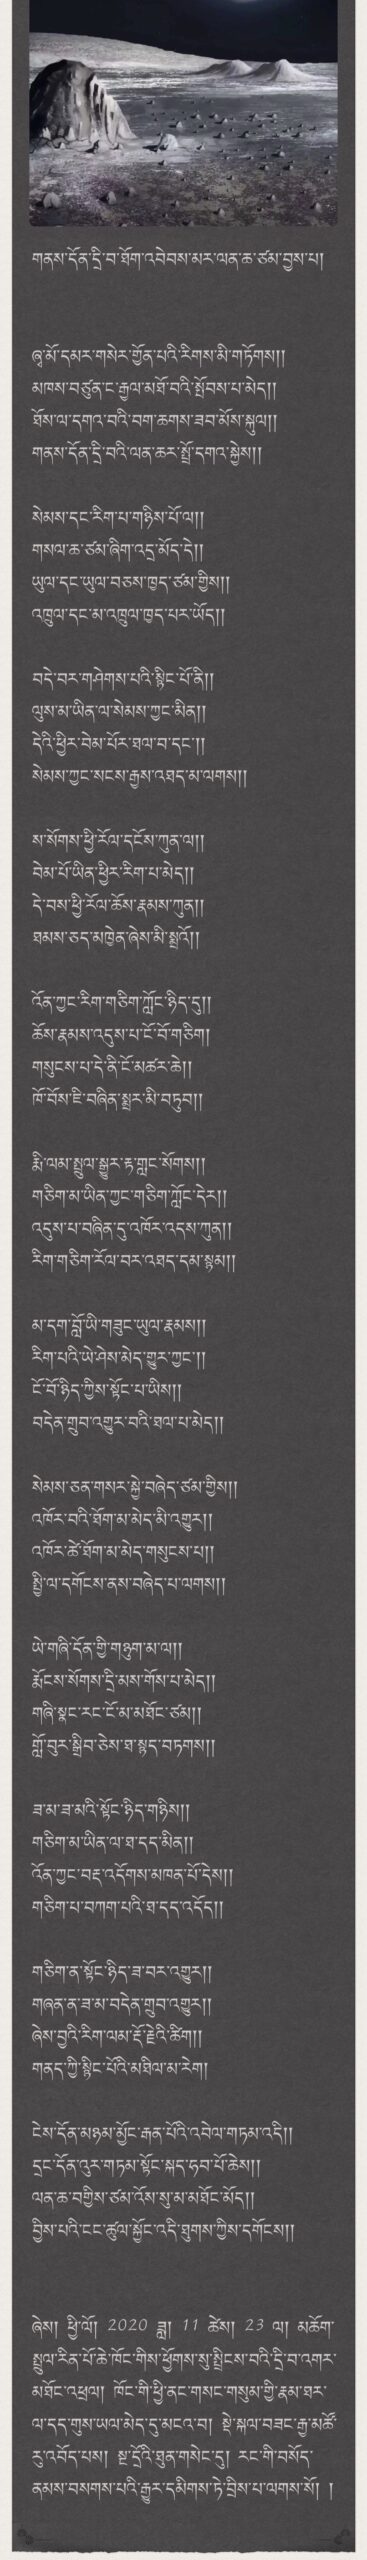 གནས་དོན་དྲི་བ་ཐོག་འབེབས་མར་ལན་ཆ་ཙམ་བྱས་པ།
ཞྭ་མོ་དམར་གསེར་གྱོན་པའི་རིགས་མི་གཏོགས།།
མཁས་བཙུན་ང་རྒྱལ་མཐོ་བའི་སྤོབས་པ་མེད།།
ཐོས་ལ་དགའ་བའི་བག་ཆགས་ཟབ་མོས་སྐུལ།།
གནས་དོན་དྲི་བའི་ལན་ཆར་སྤྲོ་དགའ་སྐྱེས།།
སེམས་དང་རིག་པ་གཉིས་པོ་ལ།།
གསལ་ཆ་ཙམ་ཞིག་འདྲ་མོད་དེ།།
ཡུལ་དང་ཡུལ་བཅས་ཁྱད་ཙམ་གྱིས།།
འཁྲུལ་དང་མ་འཁྲུལ་ཁྱད་པར་ཡོད།།
བདེ་བར་གཤེགས་པའི་སྙིང་པོ་ནི།།
ལུས་མ་ཡིན་ལ་སེམས་ཀྱང་མིན།།
དེའི་ཕྱིར་བེམ་པོར་ཐལ་བ་དང་།།
སེམས་ཀྱང་སངས་རྒྱས་འཐད་མ་ལགས།།
ས་སོགས་ཕྱི་རོལ་དངོས་ཀུན་ལ།།
བེམ་པོ་ཡིན་ཕྱིར་རིག་པ་མེད།།
དེ་བས་ཕྱི་རོལ་ཆོས་རྣམས་ཀུན།།
ཐམས་ཅད་མཁྱེན་ཞེས་མི་སྨྲའོ།།
འོན་ཀྱང་རིག་གཅིག་ཀློང་ཉིད་དུ།།
ཆོས་རྣམས་འདུས་པ་ངོ་བོ་གཅིག།
གསུངས་པ་དེ་ནི་ངོ་མཚར་ཆེ།།
ཁོ་བོས་ཇི་བཞིན་སྨྲར་མི་བཏུབ།།
རྨི་ལམ་སྤྲུལ་སྒྱུར་རྟ་གླང་སོགས།།
གཅིག་མ་ཡིན་ཀྱང་གཅིག་ཀློང་དེར།།
འདུས་པ་བཞིན་དུ་འཁོར་འདས་ཀུན།།
རིག་གཅིག་རོལ་བར་འཐད་དམ་སྙམ།།
མ་དག་བློ་ཡི་གཟུང་ཡུལ་རྣམས།།
རིག་པའི་ཡེ་ཤེས་མེད་གྱུར་ཀྱང་།།
ངོ་བོ་ཉིད་ཀྱིས་སྟོང་པ་ཡིས།།
བདེན་གྲུབ་འགྱུར་བའི་ཐལ་པ་མེད།།
སེམས་ཅན་གསར་སྐྱེ་བཞེད་ཙམ་གྱིས།།
འཁོར་བའི་ཐོག་མ་མེད་མི་འགྱུར།།
འཁོར་ཚེ་ཐོག་མ་མེད་གསུངས་པ།།
སྤྱི་ལ་དགོངས་ནས་བཞེད་པ་ལགས།།
ཡེ་གཞི་དོན་གྱི་གཉུག་མ་ལ།།
རྨོངས་སོགས་དྲི་མས་གོས་པ་མེད།།
གཞི་སྣང་རང་ངོ་མ་མཐོང་ཙམ།།
གློ་བུར་སྒྲིབ་ཅེས་ཐ་སྙད་བཏགས།།
ཟ་མ་ཟ་མའི་སྟོང་ཉིད་གཉིས།།
གཅིག་མ་ཡིན་ལ་ཐ་དད་མིན།།
འོན་ཀྱང་བརྡ་འདོགས་མཁན་པོ་དེས།།
གཅིག་པ་བཀག་པའི་ཐ་དད་འདོད།།
གཅིག་ན་སྟོང་ཉིད་ཟ་བར་འགྱུར།།
གཞན་ན་ཟ་མ་བདེན་གྲུབ་འགྱུར།།
ཞེས་བྱའི་རིག་ལམ་རྡོ་རྗེའི་ཚིག།
གནད་ཀྱི་སྙིང་པོའི་མཐིལ་མ་རེག།
ངེས་དོན་མཉམ་མྱོང་རྒན་པོའི་འབེལ་གཏམ་འདི།།
དྲང་དོན་འུར་གཏམ་སྟོང་སྐད་ཧབ་པོ་ཆེས།།
ལན་ཆ་བགྱིས་ཙམ་འོས་སུ་མ་མཐོང་མོད།།
བྱིས་པའི་ངང་ཚུལ་སྐྱོང་འདི་ཐུགས་ཀྱིས་དགོངས།།
ཞེས། ཕྱི་ལོ། 2020 ཟླ། 11 ཚེས། 23 ལ། མཆོག་
སྤྲུལ་རིན་པོ་ཆེ་ཁོང་གིས་ཕྱོགས་སུ་སྤྲིངས་བའི་དྲི་བ་འགར་
མཐོང་འཕྲལ། ཁོང་གི་ཕྱི་ནང་གསང་གསུམ་གྱི་རྣམ་ཐར་
ལ་དད་གུས་ཡལ་མེད་དུ་མངའ་བ། སྡེ་སྐལ་བཟང་རྒྱ་མཚོ་
རུ་འབོད་པས། སྔ་དྲོའི་ཐུན་གསེང་དུ། རང་གི་བསོད་
ནམས་བསགས་པའི་རྒྱུར་དམིགས་ཏེ་བྲིས་པ་ལགས་སོ། །